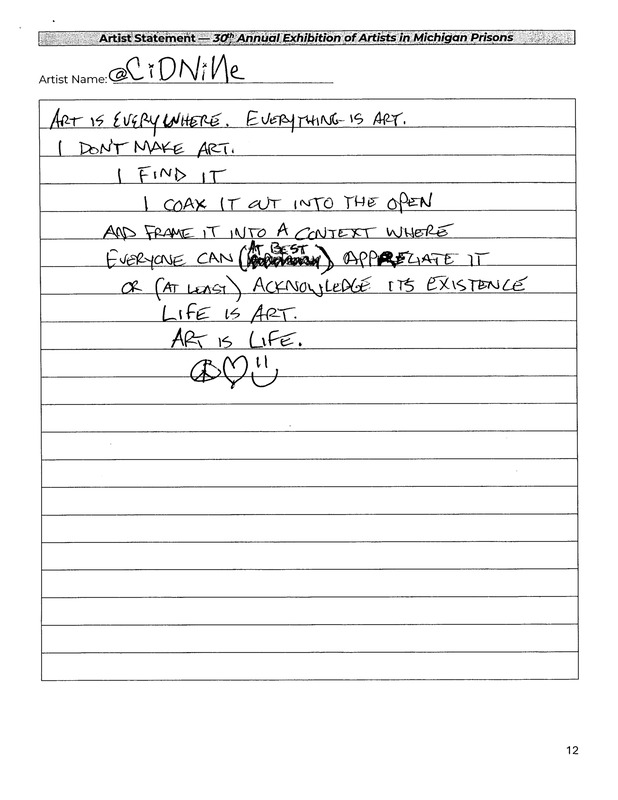 Artist Statement — 30th Annual Exhibition of Artists in Michigan Prisons
Artist Name: @CiDNiNe
ART IS EVERYWHERE. EVERYTHING IS ART.
I DON'T MAKE ART.
I FIND IT
I COAX IT OUT INTO THE OPEN
AND FRAME IT INTO A CONTEXT WHERE
EVERYONE CAN (AT BEST) APPRECIATE IT
OR (AT LEAST) ACKNOWLEDGE ITS EXISTENCE
LIFE IS ART.
ART IS LIFE.
12